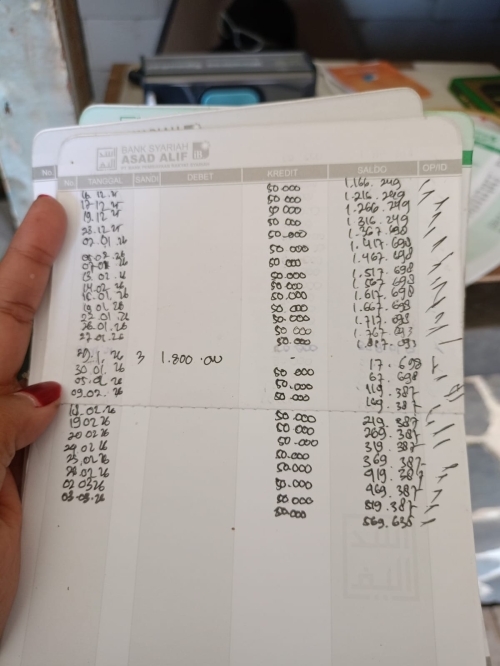 BANK SYARIAH
ASAD ALIF
No. No. TANGGAL SANDI DEBET KREDIT SALDO OP/ID
50.000 1.166.249
17.12.25 50.000 1.216.249
19.12.25 50.000 1.266.249
23.12.25 50.000 1.316.249
02.01.26 50.000 1.367.698
50.000 1.417.698
50.000 1.467.698
50.000 1.517.698
50.000 1.567.698
50.000 1.617.698
19.01.26 50.000 1.667.698
22.01.26 50.000 1.717.093
26.01.26 50.000 1.767.093
27.01.26 50.000
3 1.800.000 - 17.698
30.01.26 50.000 67.698
50.000 119.387
09.02.26 50.000 169.387
18.02.26 50.000 219.387
19.02.26 50.000 269.387
20.02.26 50.000 319.387
50.000 369.387
25.02.26 50.000 419.387
50.000 469.387
02.03.26 50.000 519.387
03.03.26 50.000 569.635